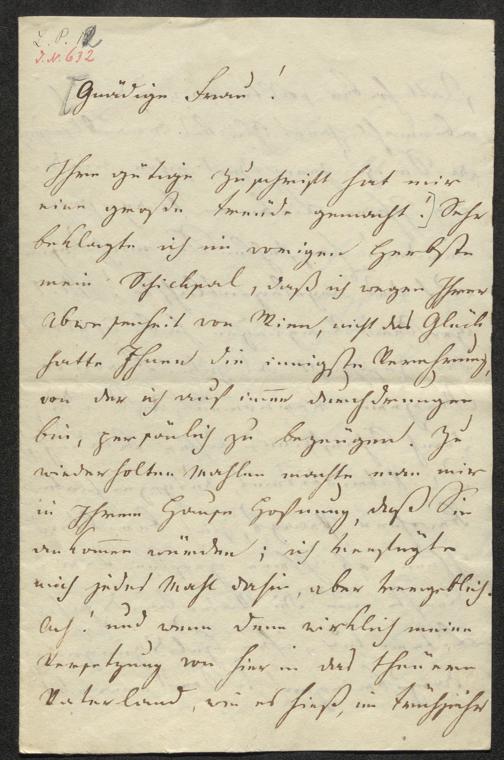 L. P. 12
J. N. 632
[Gnädige Frau!
Ihre gütige Zuschrift hat mir
eine große Freude gemacht!] Sehr
beklagte ich im vorigen Herbste
mein Schicksal, daß ich wegen Ihrer
Abwesenheit von Wien, nicht das Glück
hatte Ihnen die innigste Verehrung,
von der ich auf im̅er durchdrungen
bin, persönlich zu bezeugen. Zu
wiederholten Mahlen machte man mir
in Ihrem Hause Hoffnung, daß Sie
ankom̅en würden; ich verfügte
mich jedes Mahl dahin, aber vergeblich.
Ach! und wenn denn wirklich meine
Versetzung von hier in das theuere
Vaterland, wie es hieß, im Frühjahr